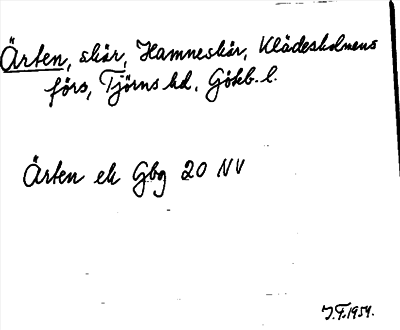 Ärten, skär, Hamneskär, Klädesholmens
förs, Tjörns hd, Göteb. l.
Ärten ek Gbg 20 NV
J.F. 1954.